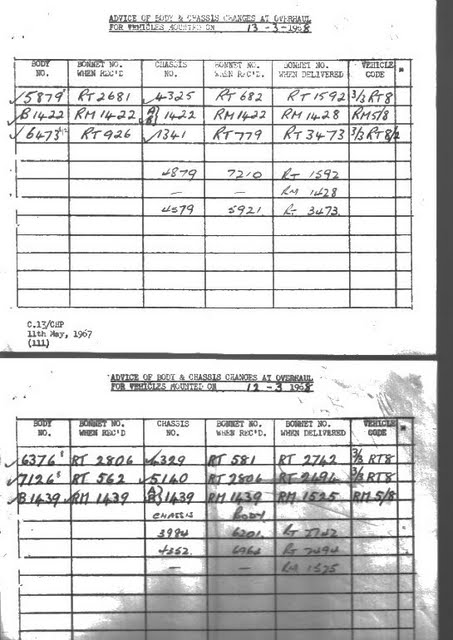 ADVICE OF BODY & CHASSIS CHANGES AT OVERHAUL
FOR VEHICLES MOUNTED ON 13-3-1968
BODY NO. BONNET NO. WHEN REC'D CHASSIS NO. BONNET NO. WHEN REC'D. BONNET NO. WHEN DELIVERED VEHICLE CODE
✓5879 RT 2681 ✓4325 RT 682 RT 1592 3/3 RT8
✓B1422 RM 1422 1422 RM 1422 RM 1428 RM5/8
✓6473 RT 926 ✓1341 RT 779 RT 3473 3/3 RT8/2
4879 7210 RT 1592
— — RM 1428
4579 5921 RT 3473.
C.13/CHP
11th May, 1967
(111)
ADVICE OF BODY & CHASSIS CHANGES AT OVERHAUL
FOR VEHICLES MOUNTED ON 12-3-1968
BODY NO. BONNET NO. WHEN REC'D CHASSIS NO. BONNET NO. WHEN REC'D. BONNET NO. WHEN DELIVERED VEHICLE CODE
✓6376 RT 2806 ✓6329 RT 581 RT 2742 3/3 RT8
✓7126 RT 562 ✓5140 RT 2806 RT 2494 3/3 RT8
✓B1439 ✓RM 1439 1439 RM 1439 RM 1525 RM 5/8
CHASSIS BODY
3984 6201 RT 2742
4352 6964 RT 2494
— — RM 1525